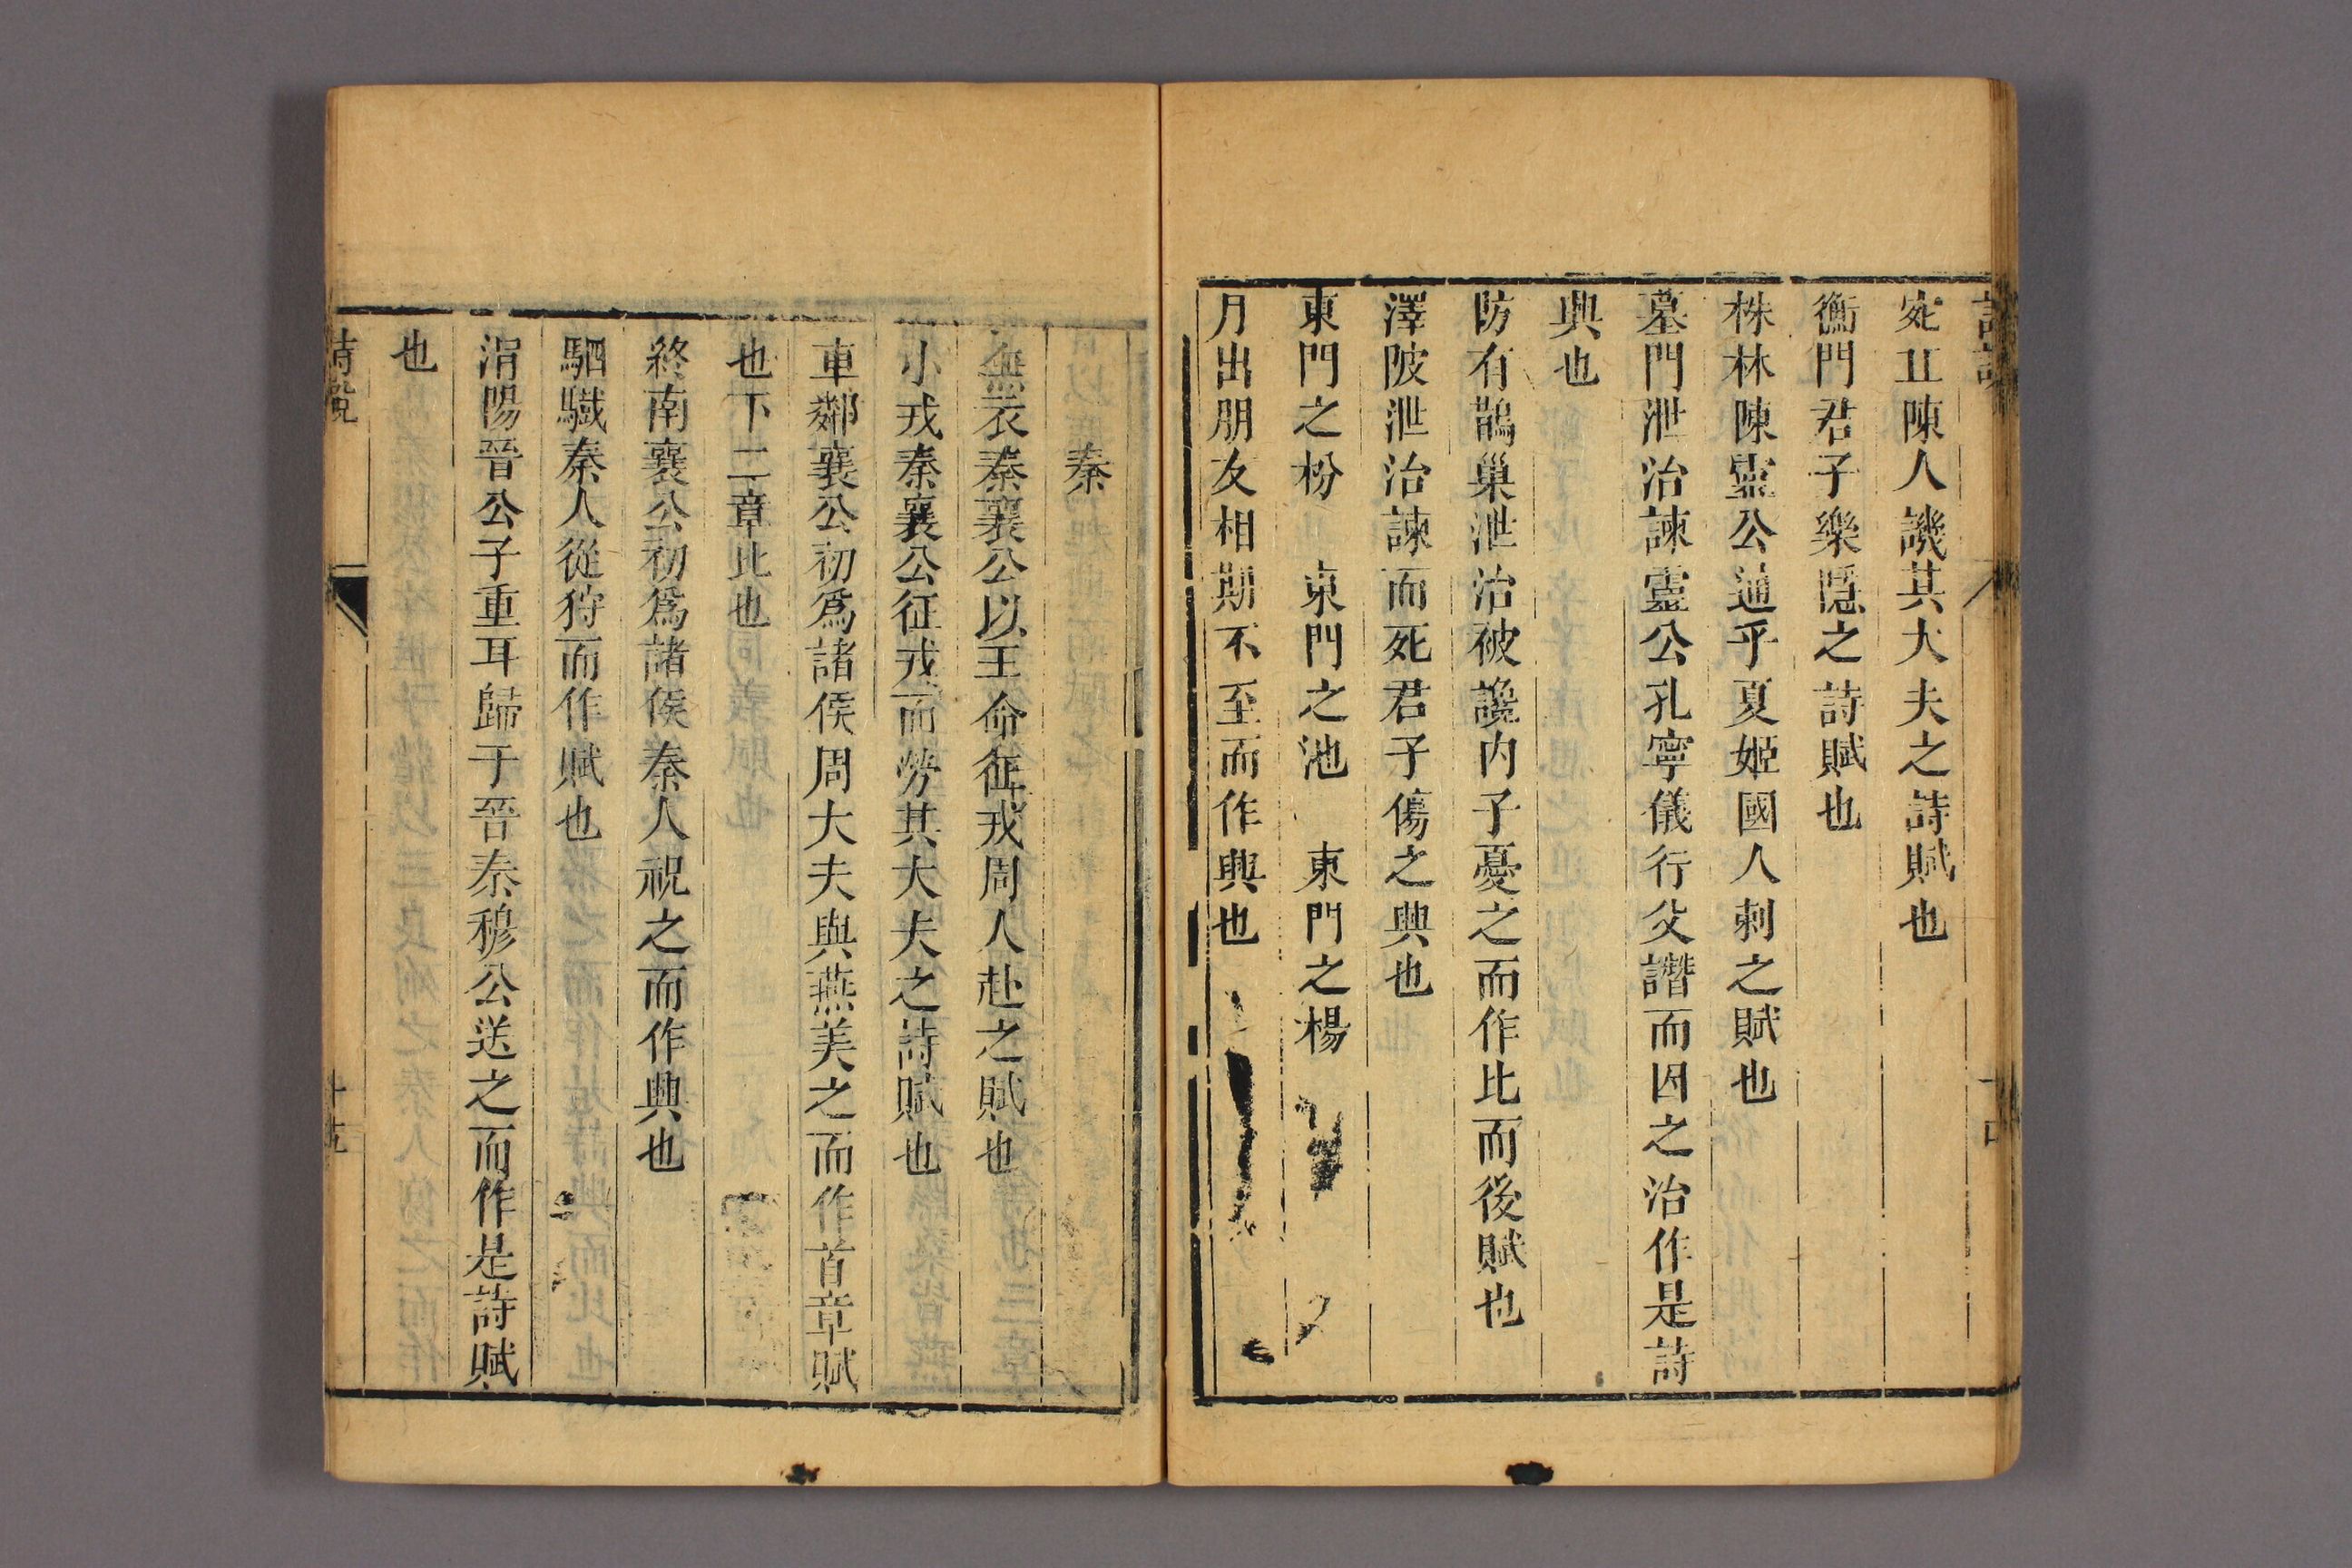 宛丘陳人譏其大夫之詩賦也
衡門君子樂隱之詩賦也
株林陳靈公通乎夏姬國人刺之賦也
墓門泄治諫靈公孔寧儀行父譖而囚之治作是詩
興也
防有鵲巢泄治被讒內子憂之而作比而後賦也
澤陂泄治諫而死君子傷之興也
東門之枌　東門之池　東門之楊
月出朋友相期不至而作興也
秦
無衣秦襄公以王命征戎周人赴之賦也
小戎秦襄公征戎而勞其大夫之詩賦也
車鄰襄公初爲諸侯周大夫與燕美之而作首章賦
也下二章比也
終南襄公初爲諸侯秦人祝之而作興也
駟驖秦人從狩而作賦也
渭陽晉公子重耳歸于晉秦穆公送之而作是詩賦
也
詩說